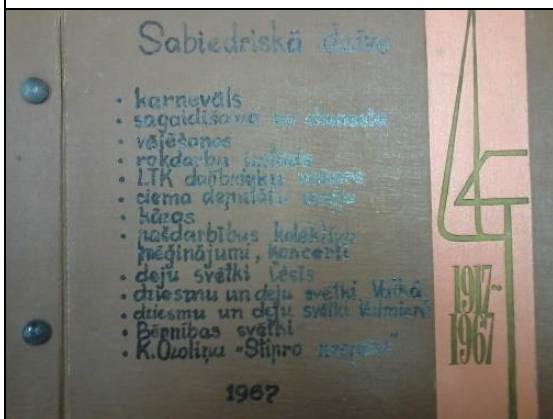 Sabiedriskā dzīve
• karnevāls
• sagaidīšana
• vējēšanas
• rokdarbu izstāde
• LTK dalībnieku vakars
• ciema deputātu
• kāzas
• pašdarbības kolektīvu
mēģinājumi, koncerti
• deju svētki Cēsīs
• dziesmu un deju svētki Valkā
• dziesmu un deju svētki Valmierā
• Bērnības svētki
• K. Ozoliņa "Stipro
1967
1917-
1967